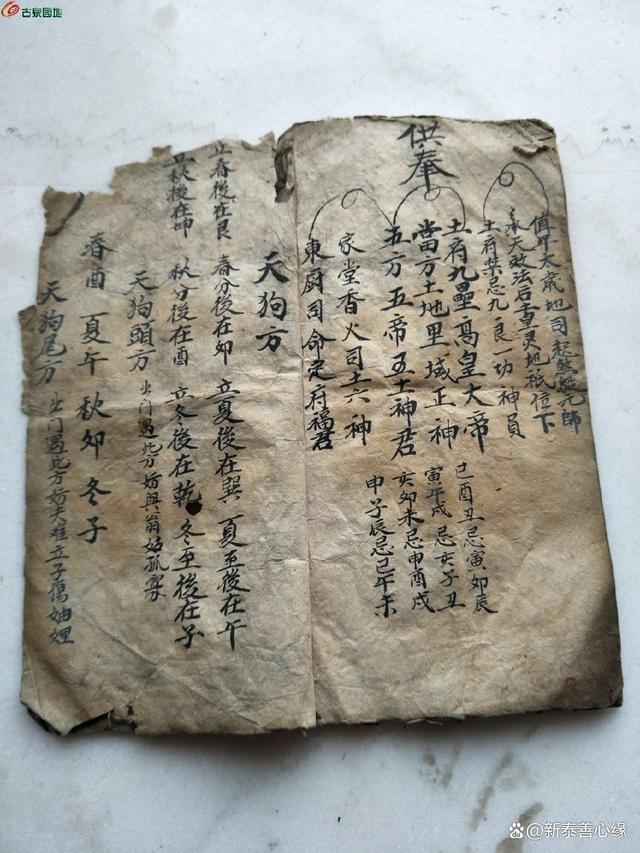 古泉园地
供奉
值年太歲地司起煞殷元帥
奉天敕法后土重灵地祇位下
土府禁忌九良一切神員
土府九壘高皇大帝
當方土地里域正神
五方五帝五土神君
家堂香火司土六神
東厨司命定府福君
己酉丑忌寅卯辰
寅午戌忌亥子丑
亥卯未忌申酉戌
申子辰忌己午未
天狗方
立春後在艮 春分後在卯 立夏後在巽 夏至後在午
立秋後在坤 秋分後在酉 立冬後在乾 冬至後在子
天狗頭方 出门遇此方妨與翁姑孤寡
春酉 夏午 秋卯 冬子
天狗尾方 出门遇此方妨夫难立子傷妯娌
新泰善心缘